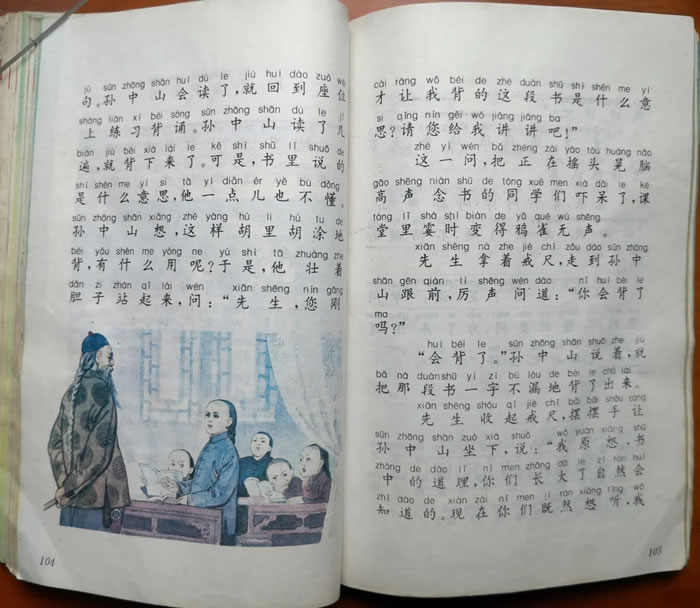 jù sūn zhōng shān huì dú le jiù huí dào zuò wèi
句。孙中山会读了,就回到座位
shàng liàn xí bèi sòng sūn zhōng shān dú le jǐ
上练习背诵。孙中山读了几
biàn jiù bèi xià lái le kě shì shū lǐ shuō de
遍,就背下来了。可是,书里说的
shì shén me yì si tā yì diǎn ér yě bù dǒng
是什么意思,他一点儿也不懂。
sūn zhōng shān xiǎng zhè yàng hú lǐ hú tu de
孙中山想,这样胡里胡涂地
bèi yǒu shén me yòng ne yú shì tā zhuàng zhe
背,有什么用呢?于是,他壮着
dǎn zi zhàn qǐ lái wèn xiān shēng nín gāng
胆子站起来,问:“先生,您刚
104
cái ràng wǒ bèi de zhè duàn shū shì shén me yì
才让我背的这段书是什么意
si qǐng nín gěi wǒ jiǎng jiǎng ba
思?请您给我讲讲吧!”
zhè yí wèn bǎ zhèng zài yáo tóu huàng nǎo
这一问,把正在摇头晃脑
gāo shēng niàn shū de tóng xué men xià dāi le kè
高声念书的同学们吓呆了,课
táng lǐ shà shí biàn de yā què wú shēng
堂里霎时变得鸦雀无声。
xiān shēng ná zhe jiè chǐ zǒu dào sūn zhōng
先生拿着戒尺,走到孙中
shān gēn qián lì shēng wèn dào nǐ huì bèi le
山跟前,厉声问道:“你会背了
ma
吗?”
huì bèi le sūn zhōng shān shuō zhe jiù
“会背了。”孙中山说着,就
bǎ nà duàn shū yí zì bú lòu de bèi le chū lái
把那段书一字不漏地背了出来。
xiān shēng shōu qǐ jiè chǐ bǎi bǎi shǒu ràng
先生收起戒尺,摆摆手让
sūn zhōng shān zuò xià shuō wǒ yuán xiǎng shū
孙中山坐下,说:“我原想,书
zhōng de dào lǐ nǐ men zhǎng dà le zì rán huì
中的道理,你们长大了自然会
zhī dào de xiàn zài nǐ men jì rán xiǎng tīng wǒ
知道的。现在你们既然想听,我
105